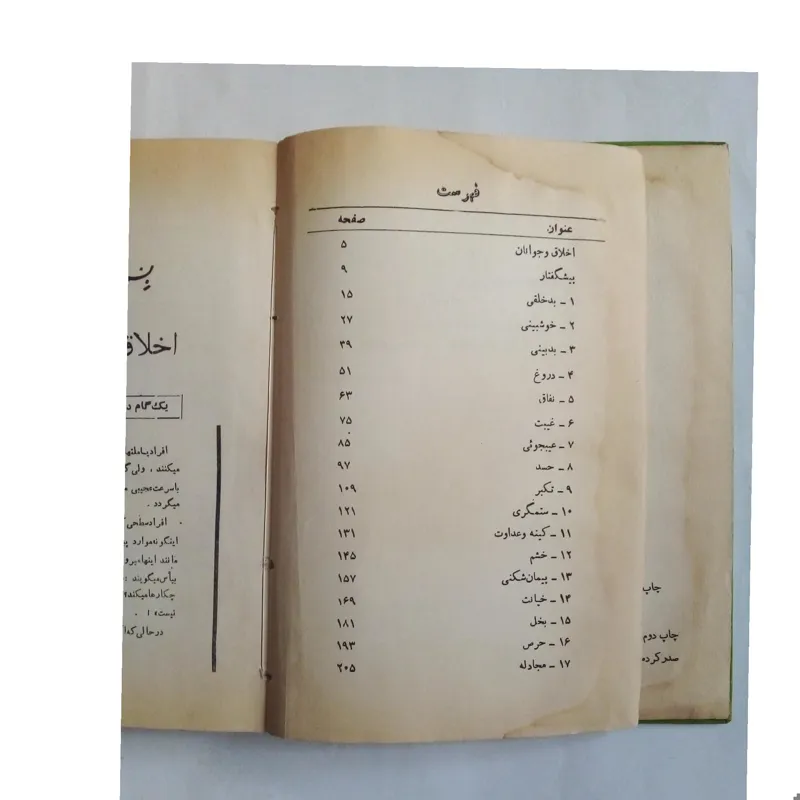 فهرست
عنوان صفحه
اخلاق وجوانان ۵
پیشگفتار ۹
۱ ـ بدخلقی ۱۵
۲ ـ خوشبینی ۲۷
۳ ـ بدبینی ۳۹
۴ ـ دروغ ۵۱
۵ ـ نفاق ۶۳
۶ ـ غیبت ۷۵
۷ ـ عیبجوئی ۸۵
۸ ـ حسد ۹۷
۹ ـ تکبر ۱۰۹
۱۰ ـ ستمگری ۱۲۱
۱۱ ـ کینه وعداوت ۱۳۱
۱۲ ـ خشم ۱۴۵
۱۳ ـ پیمان‌شکنی ۱۵۷
۱۴ ـ خیانت ۱۶۹
۱۵ ـ بخل ۱۸۱
۱۶ ـ حرص ۱۹۳
۱۷ ـ مجادله ۲۰۵
اخلاق
یک گام د
افراد یا ملتها
میکنند ، ولی
باسرعت عجیبی
میگردد .
افراد سطحی
اینگونه موارد
مانند اینها
بیأس میگویند :
چکارها میکند؟
نیست» ! .
در حالی که
چاپ
چاپ دوم
صدر کرده